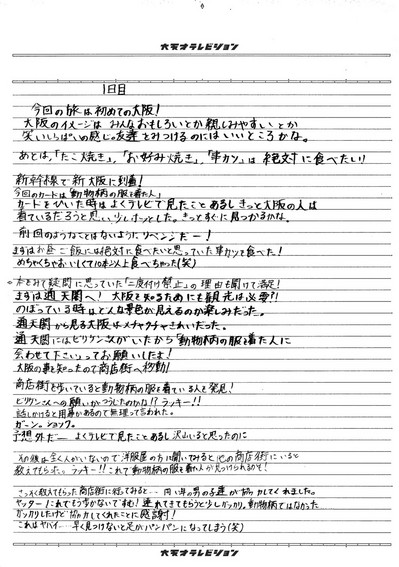 大天才テレビジョン
1日目
今回の旅は初めての大阪!
大阪のイメージは みんなおもしろいとか親しみやすい とか
笑いいっぱいの感じ♪友達とみつけるのにはいいところかな。
あとは、「たこ焼き」、「お好み焼き」、「串カツ」は絶対に食べたい!!
新幹線で新大阪に到着!
今回のカードは「動物柄の服を着た人」
カードをひいた時はよくテレビで見たことあるし きっと大阪の人は
着ているだろうと思い少しホッとした。きっとすぐに見つかるかな。
前回のようなことはないようにリベンジだー!
まずはお昼ご飯には絶対に食べたいと思っていた串カツを食べた!
めちゃくちゃおいしくて10本以上食べちゃった(笑)
疑問に思っていた「二度付け禁止」の理由も聞けて満足!
まずは通天閣へ! 大阪を知るためにも観光は必要?!
のぼっている時はどんな景色が見えるのか楽しみだった。
通天閣から見る大阪はメチャクチャきれいだった。
通天閣にはビリケンさんがいたから「動物柄の服を着た人に
会わせて下さい」ってお願いしたよ!
大阪の事を知ったので商店街へ移動!
商店街を歩いていると動物柄の服を着ている人を発見!
ビリケンさんへの願いがつうじたのかな!? ラッキー!!
話しかけると用事があるので無理って言われた。
ガーン。ショック。
予想外だー よくテレビで見たことあるし沢山いると思ったのに
その後は全く人がいないので洋服屋の方に聞いてみると他の商店街にいると
教えてもらった。ラッキー!! これで動物柄の服を着た人が見つけられるかも!
さっそく教えてもらった商店街に行ってみると… 同い年の男の子達が協力してくれました。
ヤッター!これでもう歩かないですむ! 連れてきてもらうと少しガッカリ。動物柄ではなかった
ガッカリしたけど協力してくれたことに感謝!
これはヤバイ… 早く見つけないと足がパンパンになってしまう(笑)
大天才テレビジョン